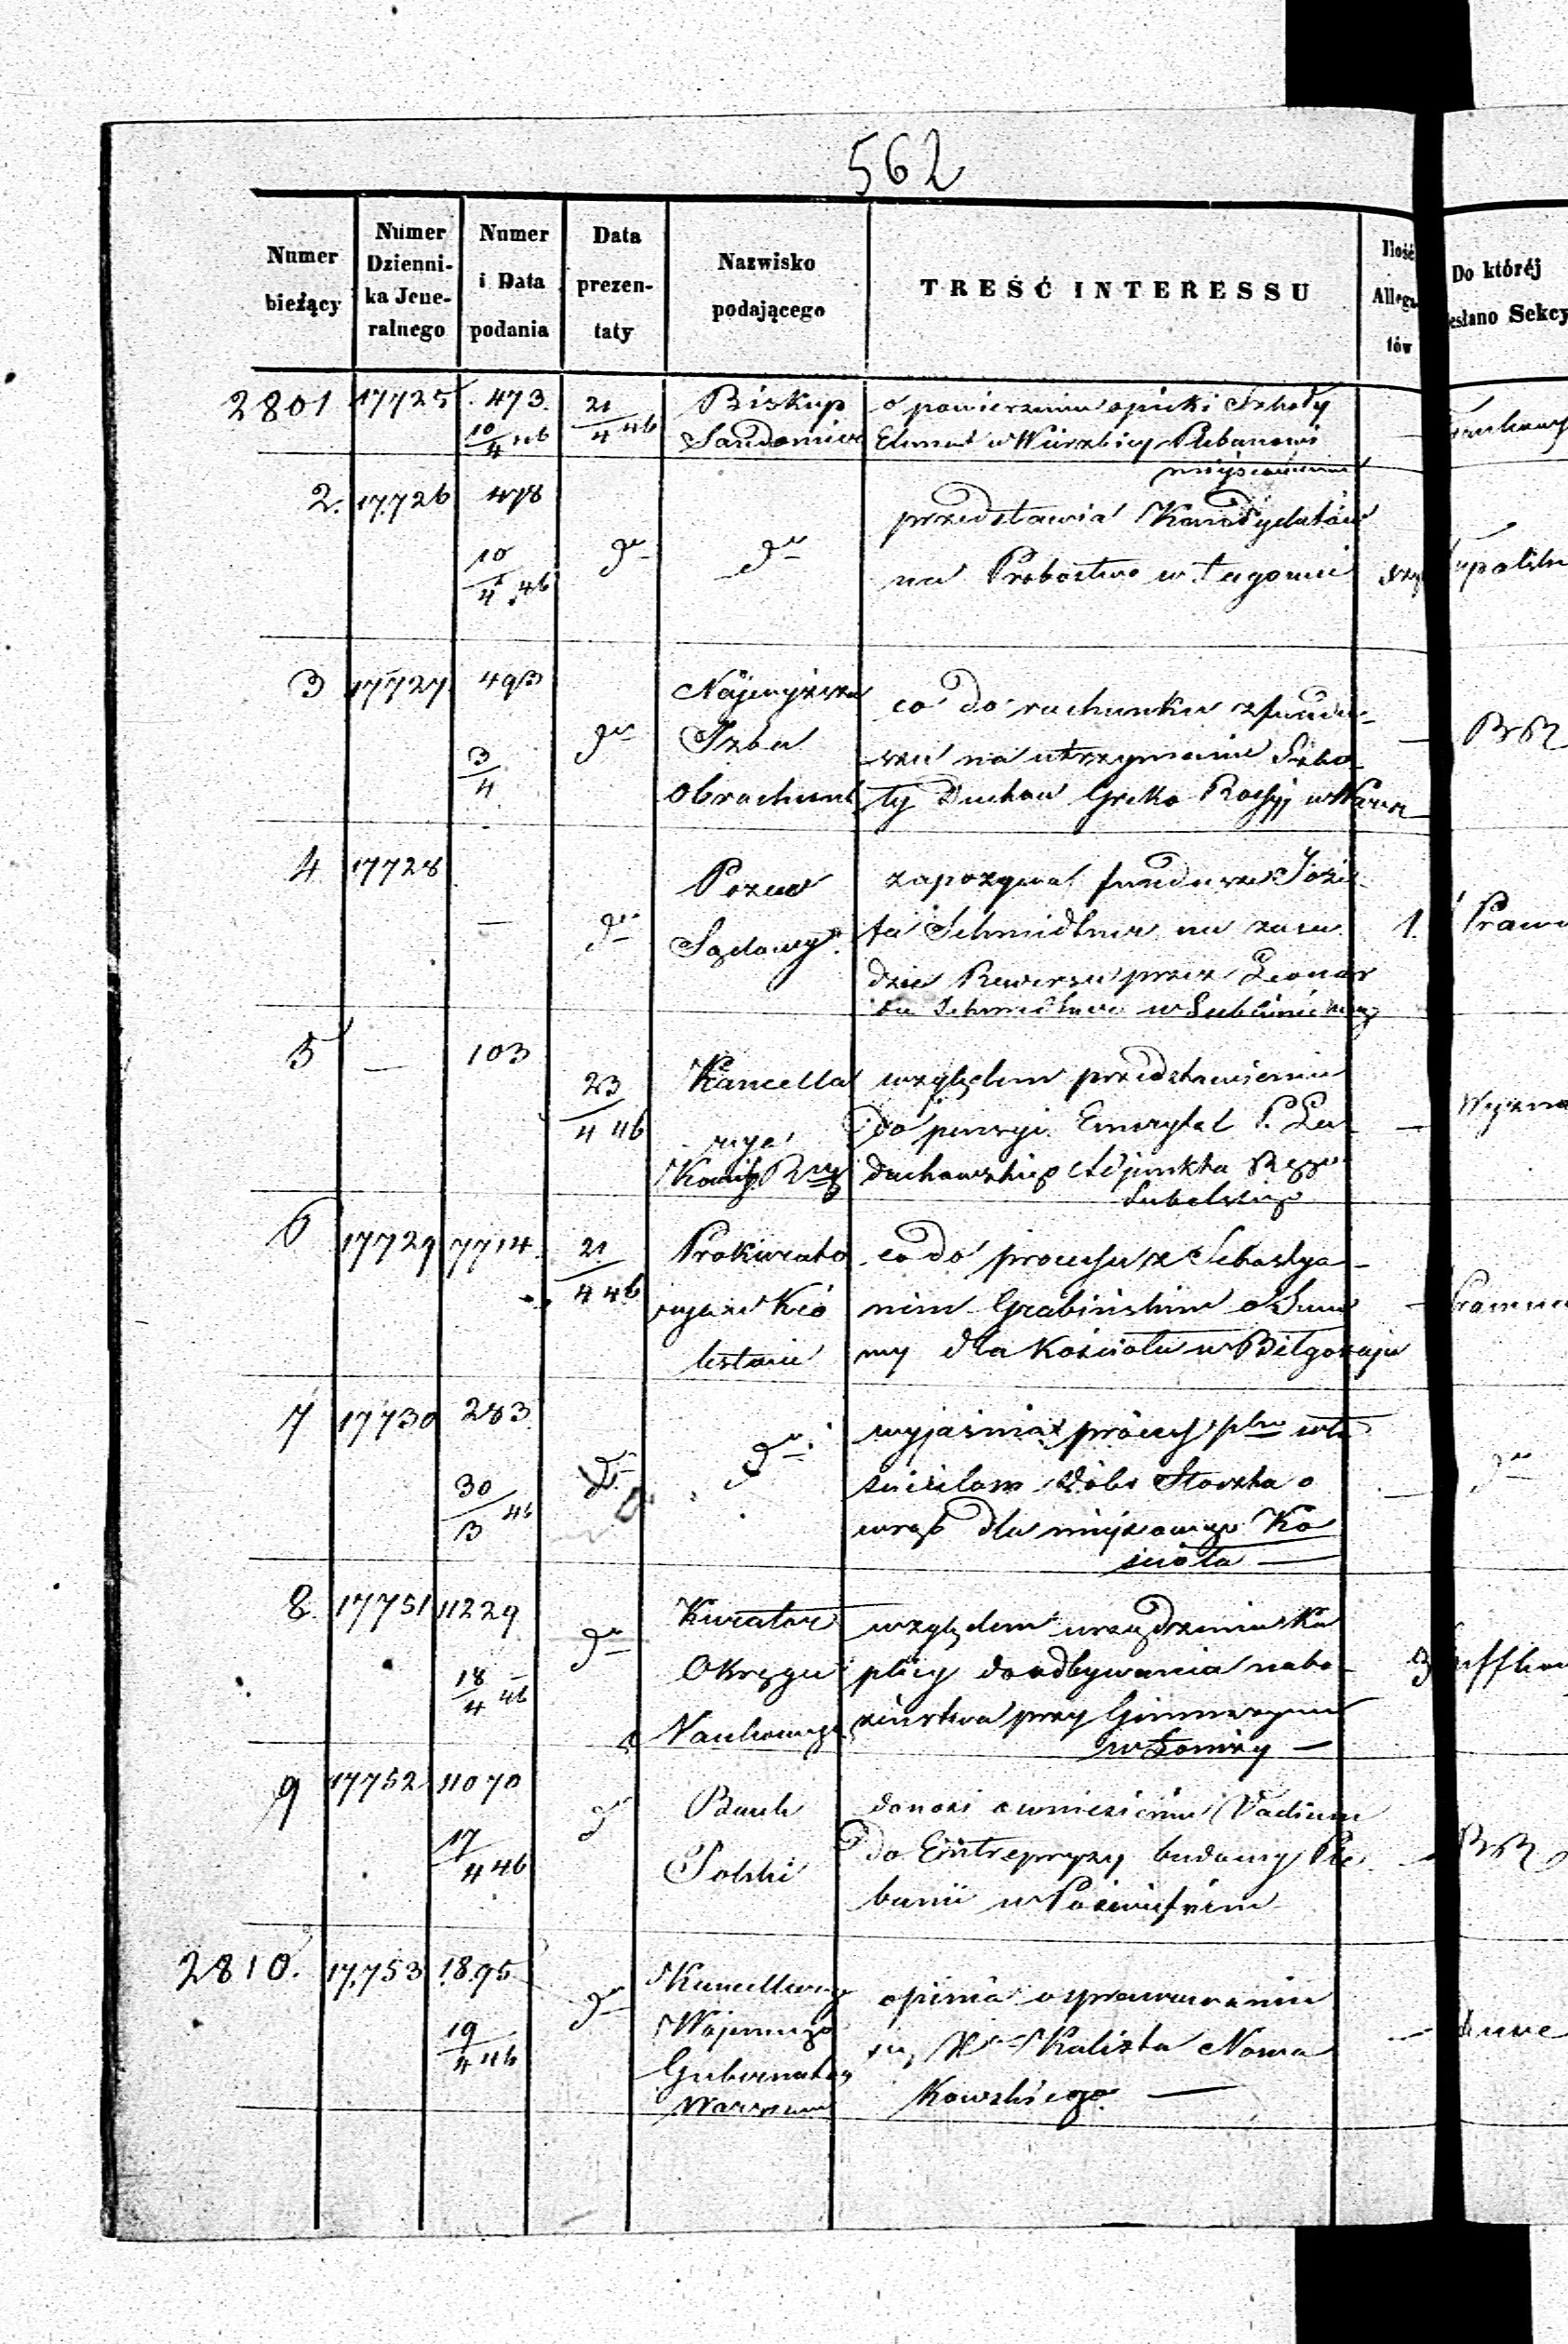 562
Numer bieżący | Numer Dzienni-ka Jene-ralnego | Numer i Data podania | Data prezen-taty | Nazwisko podającego | TREŚĆ INTERESSU | Ilość Allega tów | Do któréj esłano Sekcy
2801 17725 473 10/4 46 21/4 46
Biskup
Sandomier
o powierzeniu opieki Szkoły
Element w Wierzbicy Plebanowi
miejscowemu
2. 17726 478 10/4 46 do do
przedstawia Kandydatów
na Probostwo w Łagowie
3 17727 493 3/4 do
Najwyższa
Izba
Obrachunk
co do rachunku z fundu-
szu na utrzymanie Szko
ły Duchow Greko Rossyj w Warsz
BR
4 17728 — do
Pozew
Sądowy
zapozywa fundusze Józe
fa Schmidtner na zasa
dzie Rewersu przez Leonar
da Schmidtner w Lublinie
1. Prawn
5 — 103 23/4 46
Kancella
ryja
Kommiss. Rząd
względem przedstawienia
do pensyi Emerytal P. Le
duchowskiego Adjunkta Rządu
Lubelskiego
—
6 17729 7714 21/4 46
Prokurato
ryja w Kró
lestwie
co do processu z Sebastya-
nem Grabińskim o Sum
my dla Kościoła w Biłgoraju
7 17730 283 30/3 46 do do
wyjaśnia process
ścicielom Dóbr Stoczka o
wrąb dla miejscowego Ko
ścioła —
do
8. 17751 11229 18/4 46 do
Kurator
Okręgu
Naukowego
względem urządzenia Ka
plicy do odbywania nabo-
żeństwa przy Gimnazyum
w Łomży —
3
9 17752 11070 17/4 46 do
Bank
Polski
donosi o wniesieniu Vadium
do Entrepryzy budowy Ple
banii w Poświętnem
BR
2810. 17.753 1895 19/4 46 do
Kancellarya
Wojennego
Gubernatora
Warszaw
opinia o sprawowaniu
się Xa Kalixta Nowa
kowskiego. —